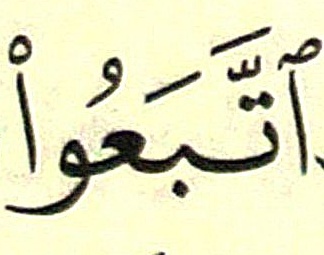 ٱتَّبَعُوا۟